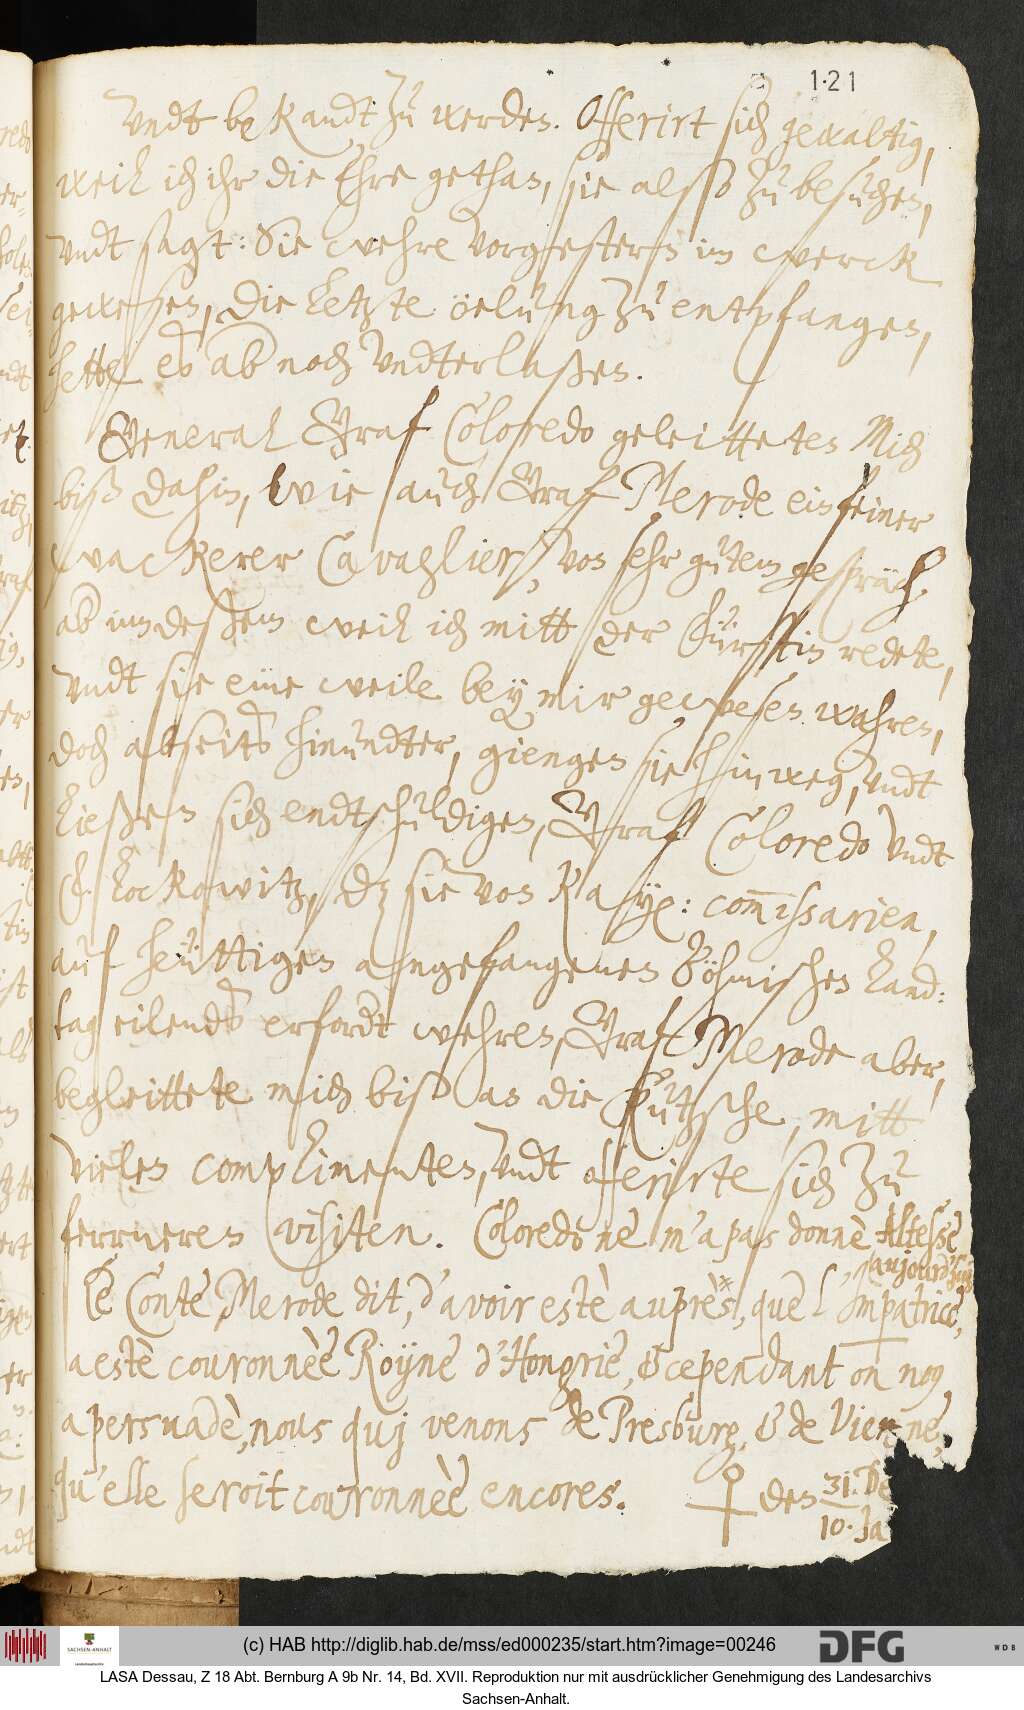 121
Undt bekandt zu werden. Offerirt sich gewaltig,
weil ich ihr die Ehre gethan, sie also zu besuchen,
Undt sagt: Sie wehre vorgestern im werck
gewesen, die letzte öelung zu entpfangen,
hette es ab noch Undterlaßen.
General Graf Coloredo geleittetes Mich
biß dahin, wie auch Graf Merode ein feiner
wackerer Cavaglier, von sehr gutem gespräch
ab indeßem weil ich mitt der Fürstin redete,
Undt sie eine weile bey mir gewesen wahren,
doch abseits hinundter, giengen sie hinweg, Undt
ließen sich endtschuldigen, Graf Coloredo Undt
H. Lockowitz, dz sie von Kaye: com̅issarien,
auf heüttigen angefangenen Böhmischen Land:
tag eilends erfordt wehren, Graf Merode aber,
begleittete mich biß an die Kutzsche, mitt
vielen complimenten, Undt offerirte sich zu
ferrneren visiten. Coloredo ne m'a pas donnè Altesse
aujourd'huy
Le Conte Merode dit, d'avoir estè auprès, que l'Impatrice,
a estè couronnèe Royne d'Hongrie, & cependant on nous
a persuadè, nous quj venons de Presburg, & de Vienne,
qu'elle seroit couronnèe encores. den 31. De
10. Ja
(c) HAB http://diglib.hab.de/mss/ed000235/start.htm?image=00246
SACHSEN-ANHALT
DFG
WDB
LASA Dessau, Z 18 Abt. Bernburg A 9b Nr. 14, Bd. XVII. Reproduktion nur mit ausdrücklicher Genehmigung des Landesarchivs
Sachsen-Anhalt.